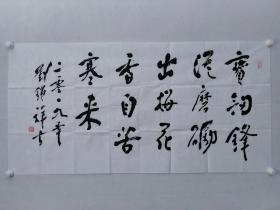 寶劍鋒
從磨礪
出梅花
香自苦
寒来
二零一九年
劉